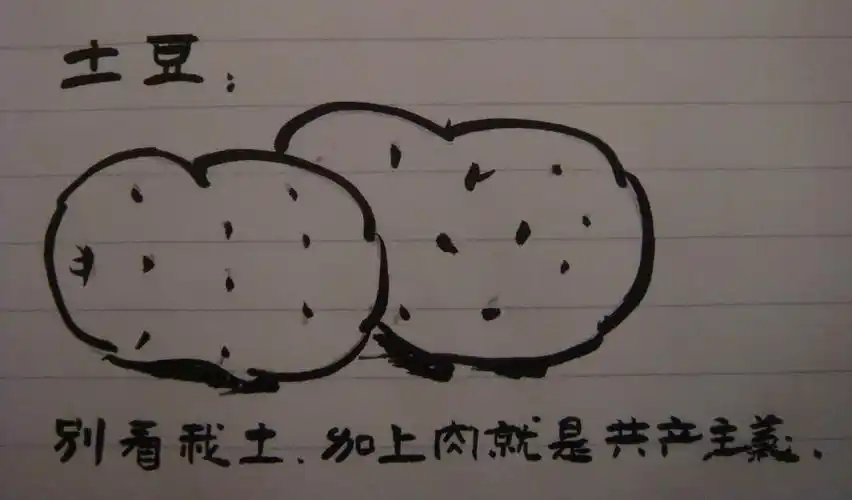 土豆:
别看我土、加上肉就是共产主义.